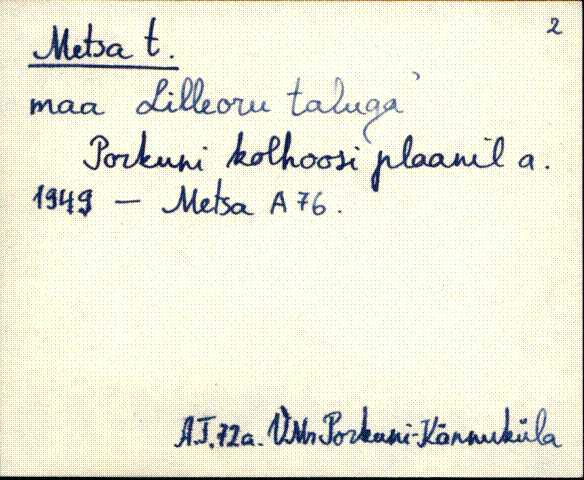 2
Metsa t.
maa Lilleoru taluga
Porkuni kolhoosi plaanil a.
1949 – Metsa A 76.
A.J. 72a. VMr Porkuni-Kännuküla